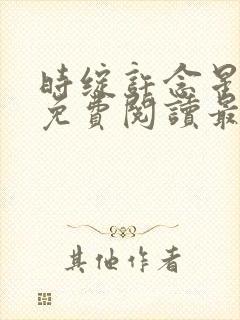 时绽許念星
免費閱讀最
其他作者